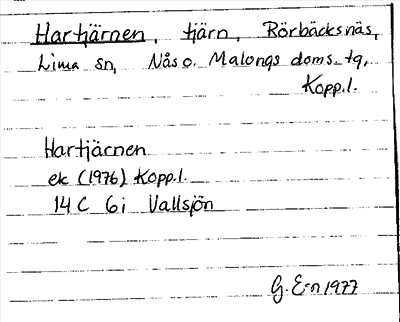 Hartjärnen, tjärn, Rörbäcksnäs,
Lima sn, Nås o. Malungs doms.tg,
Kopp.l.
Hartjärnen
ek (1976) Kopp.l.
14 C 6i Vallsjön
G. E-n 1977